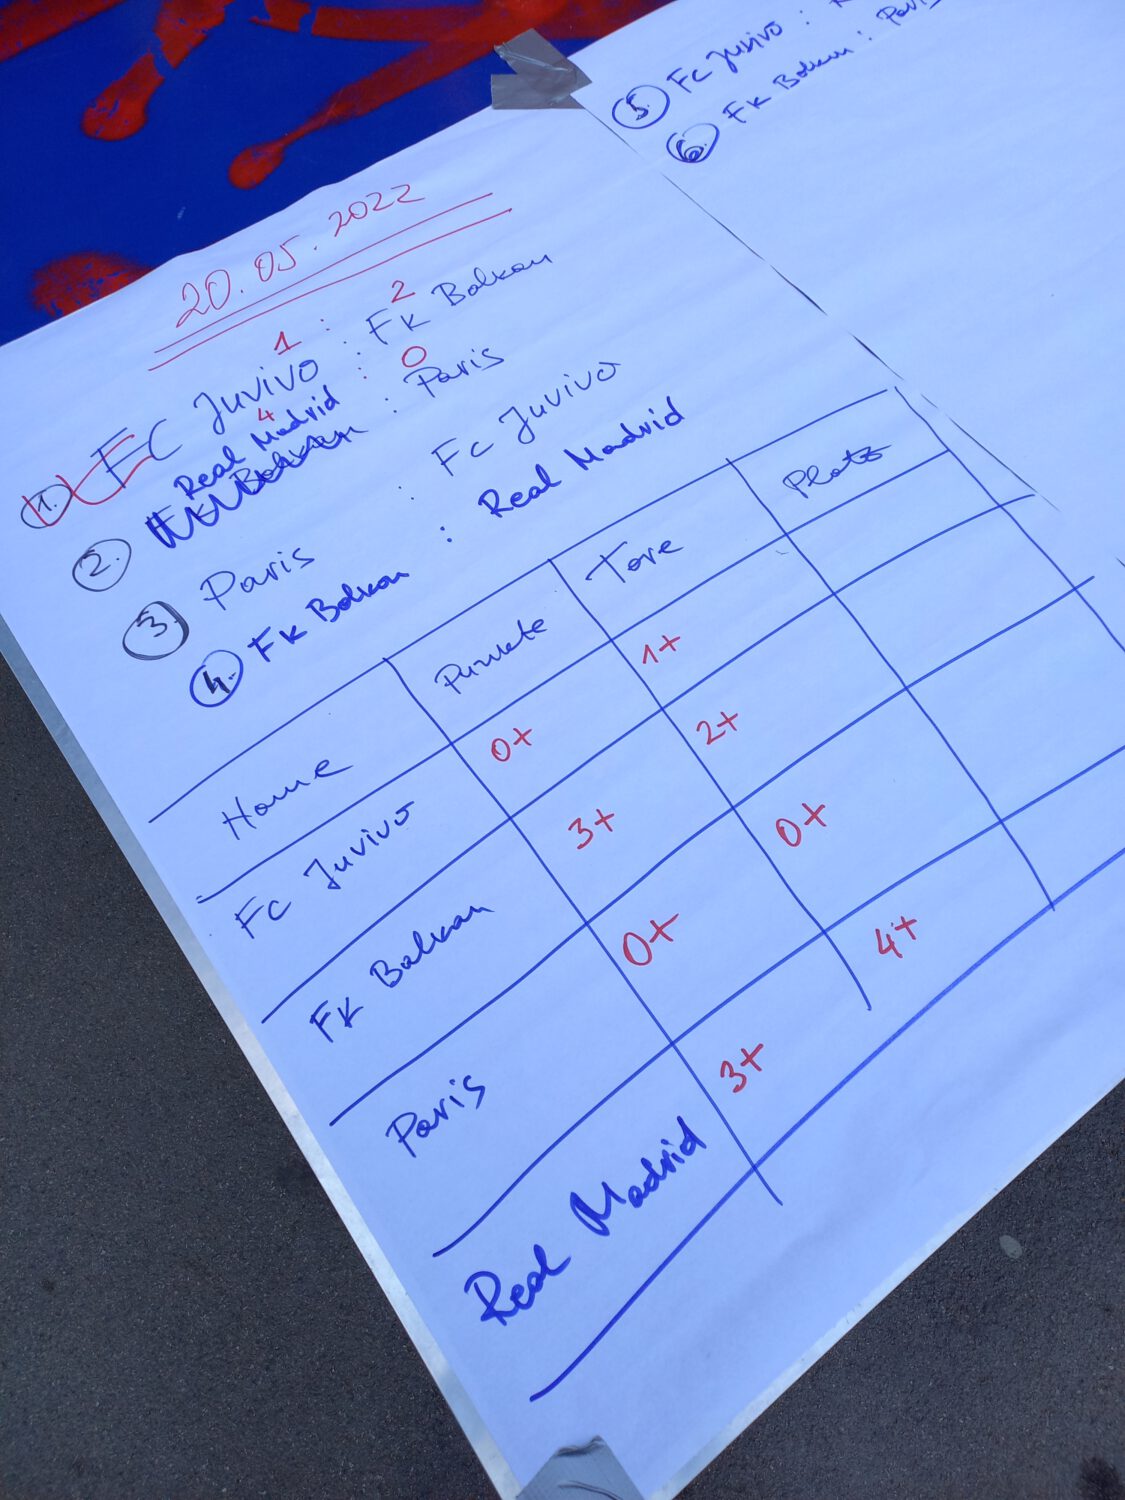 20.05.2022
1 : 2
1. FC Juvivo : FK Balkan
4 : 0
2. Real Madrid : Paris
3. Paris : FC Juvivo
4. FK Balkan : Real Madrid
5. FC Juvivo :
6. FK Balkan : Paris
Name Punkte Tore Platz
FC Juvivo 0+ 1+
FK Balkan 3+ 2+
Paris 0+ 0+
Real Madrid 3+ 4+